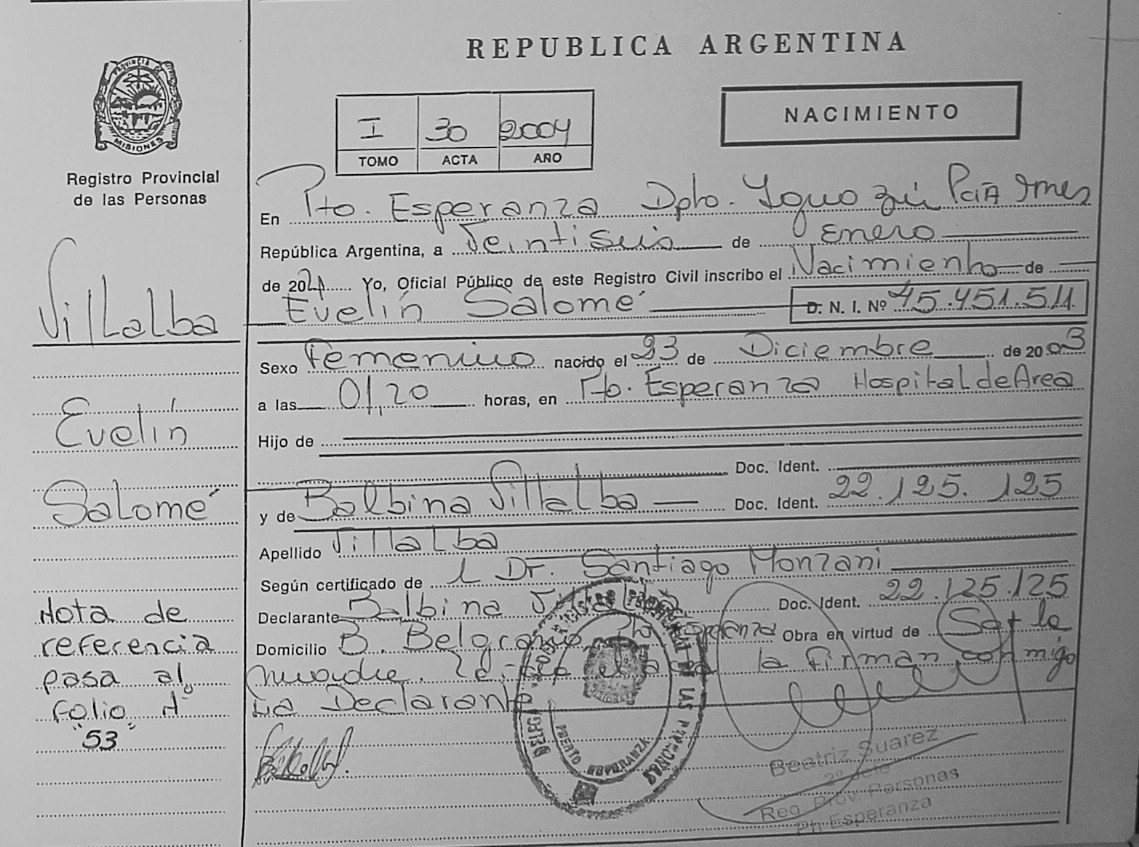 REPUBLICA ARGENTINA
PROVINCIA DE MISIONES
Registro Provincial
de las Personas
I 30 2004
TOMO ACTA AÑO
NACIMIENTO
En Pto. Esperanza Dpto. Iguazú Pcia Mnes
República Argentina, a Veintiseis de Enero
de 2004 Yo, Oficial Público de este Registro Civil inscribo el Nacimiento de
Evelín Salomé D. N. I. Nº 45.451.511
Sexo Femenino nacido el 23 de Diciembre de 2003
a las 01,20 horas, en Pto. Esperanza Hospital de Area
Hijo de
Doc. Ident.
y de Balbina Villalba Doc. Ident. 22.125.125
Apellido Villalba
Según certificado de l Dr. Santiago Monzani
Declarante Balbina Doc. Ident. 22.125.125
Domicilio B. Belgrano Obra en virtud de Ser la
madre. la firman conmigo
La Declarante
Villalba
Evelín
Salomé
Nota de
referencia
pasa al
folio
"53"
PUERTO ESPERANZA
DE LAS PERSONAS
Beatriz Suarez
Reg. Prov. Personas
Pto. Esperanza